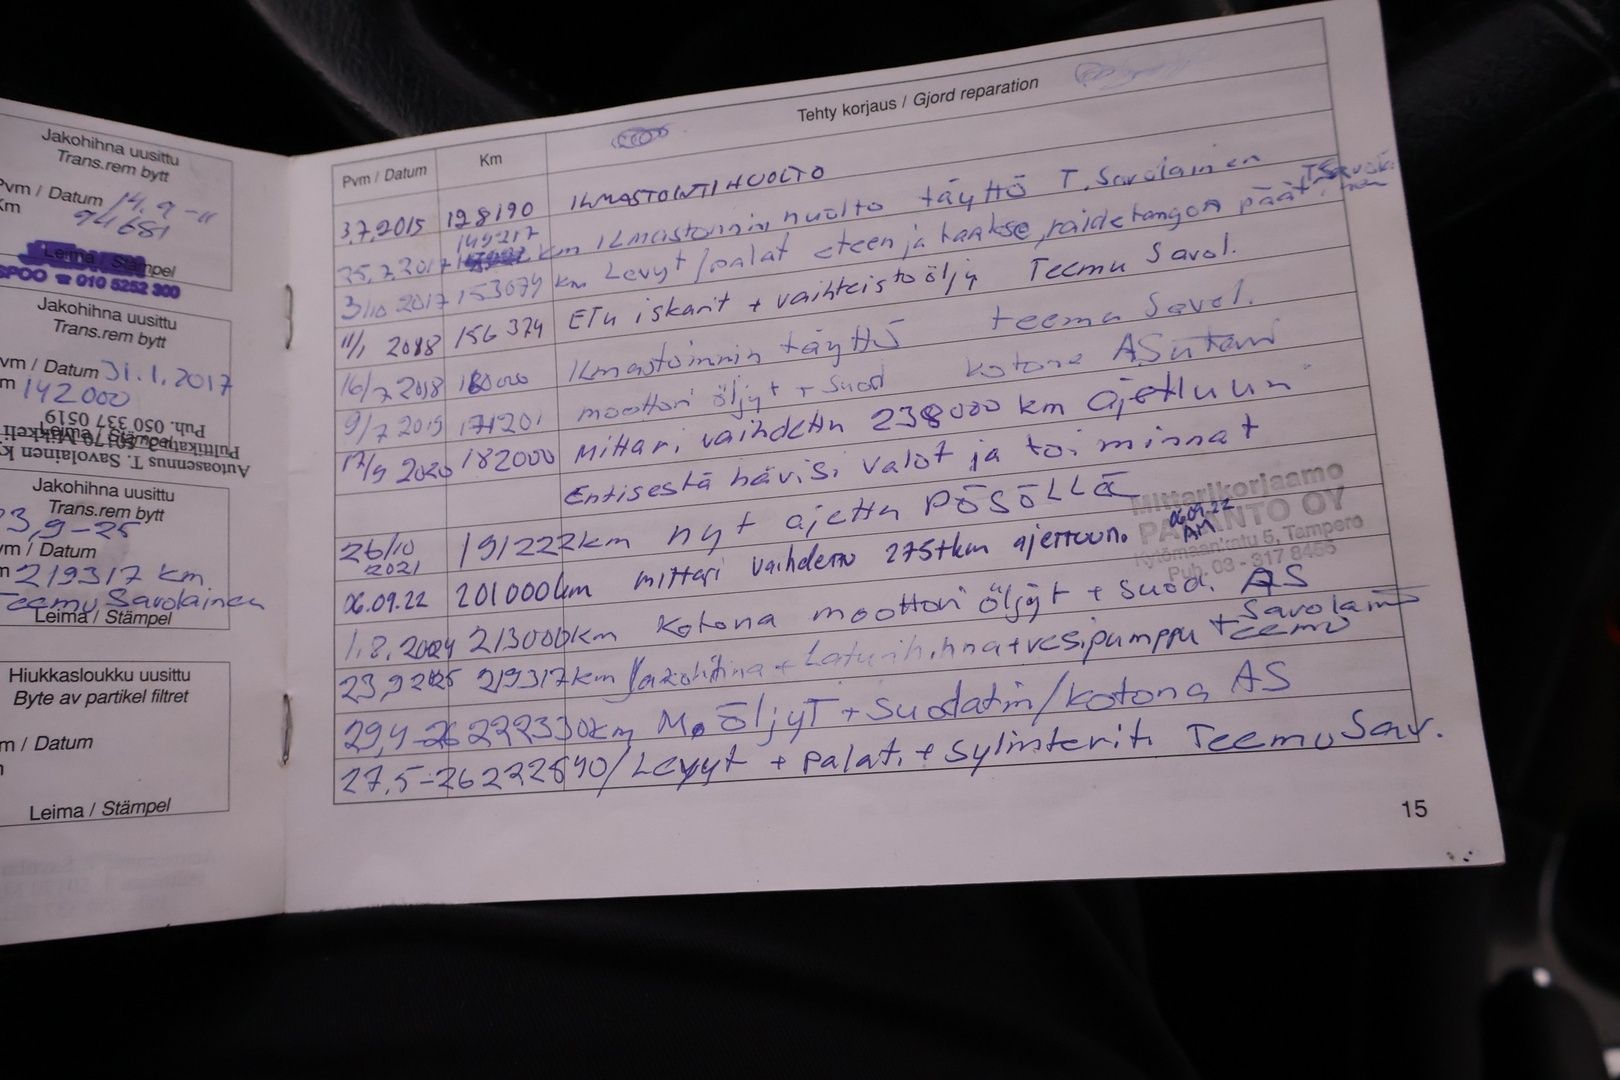 Jakohihna uusittu
Trans.rem bytt
Pvm / Datum 14.9 -11
Km 94681
Leima / Stämpel
SPOO ☎ 010 5252 300
Jakohihna uusittu
Trans.rem bytt
vm / Datum 31.1.2017
m 142000
Puh. 050 337 0519
Autoasennus T. Savolainen
Jakohihna uusittu
Trans.rem bytt
3,9-25
vm / Datum
m 219317 km.
Teemu Savolainen
Leima / Stämpel
Hiukkasloukku uusittu
Byte av partikel filtret
m / Datum
Leima / Stämpel
Pvm / Datum Km Tehty korjaus / Gjord reparation
3.7.2015 128190 ILMASTOINTIHUOLTO
25.7.2017 149217 km Ilmastonnin huolto täyttö T. Savolainen
3/10 2017 153079 km Levyt/palat eteen ja taakse, raidetangon päät
11/1 2018 156 374 Etu iskarit + vaihteistoöljy Teemu Savol.
16/7 2018 180000 Ilmastoinnin täyttö teemu Savol.
9/7 2019 171201 moottori öljyt + suod kotona
17/9 2020 182000 Mittari vaihdettu 238000 km ajettuun
Entisestä hävisi valot ja toiminnat
26/10 2021 191222km nyt ajettu PÖSÖLLÄ
06.09.22 201000km mittari vaihdettu 275tkm ajettuun. 06.09.22 AM
Mittarikorjaamo
Kytömaankatu 5, Tampere
Puh. 03 - 317 8455
1.8.2024 213000km kotona moottori öljyt + suod. AS
23,9 2025 219317km Jakohihna + Laturihihna + vesipumppu teemu Savolainen
29,4-26 222330km M. öljyT + Suodatin/kotona AS
27,5-26 222540/Levyt + palat. + Sylinterit Teemu Sav.
15